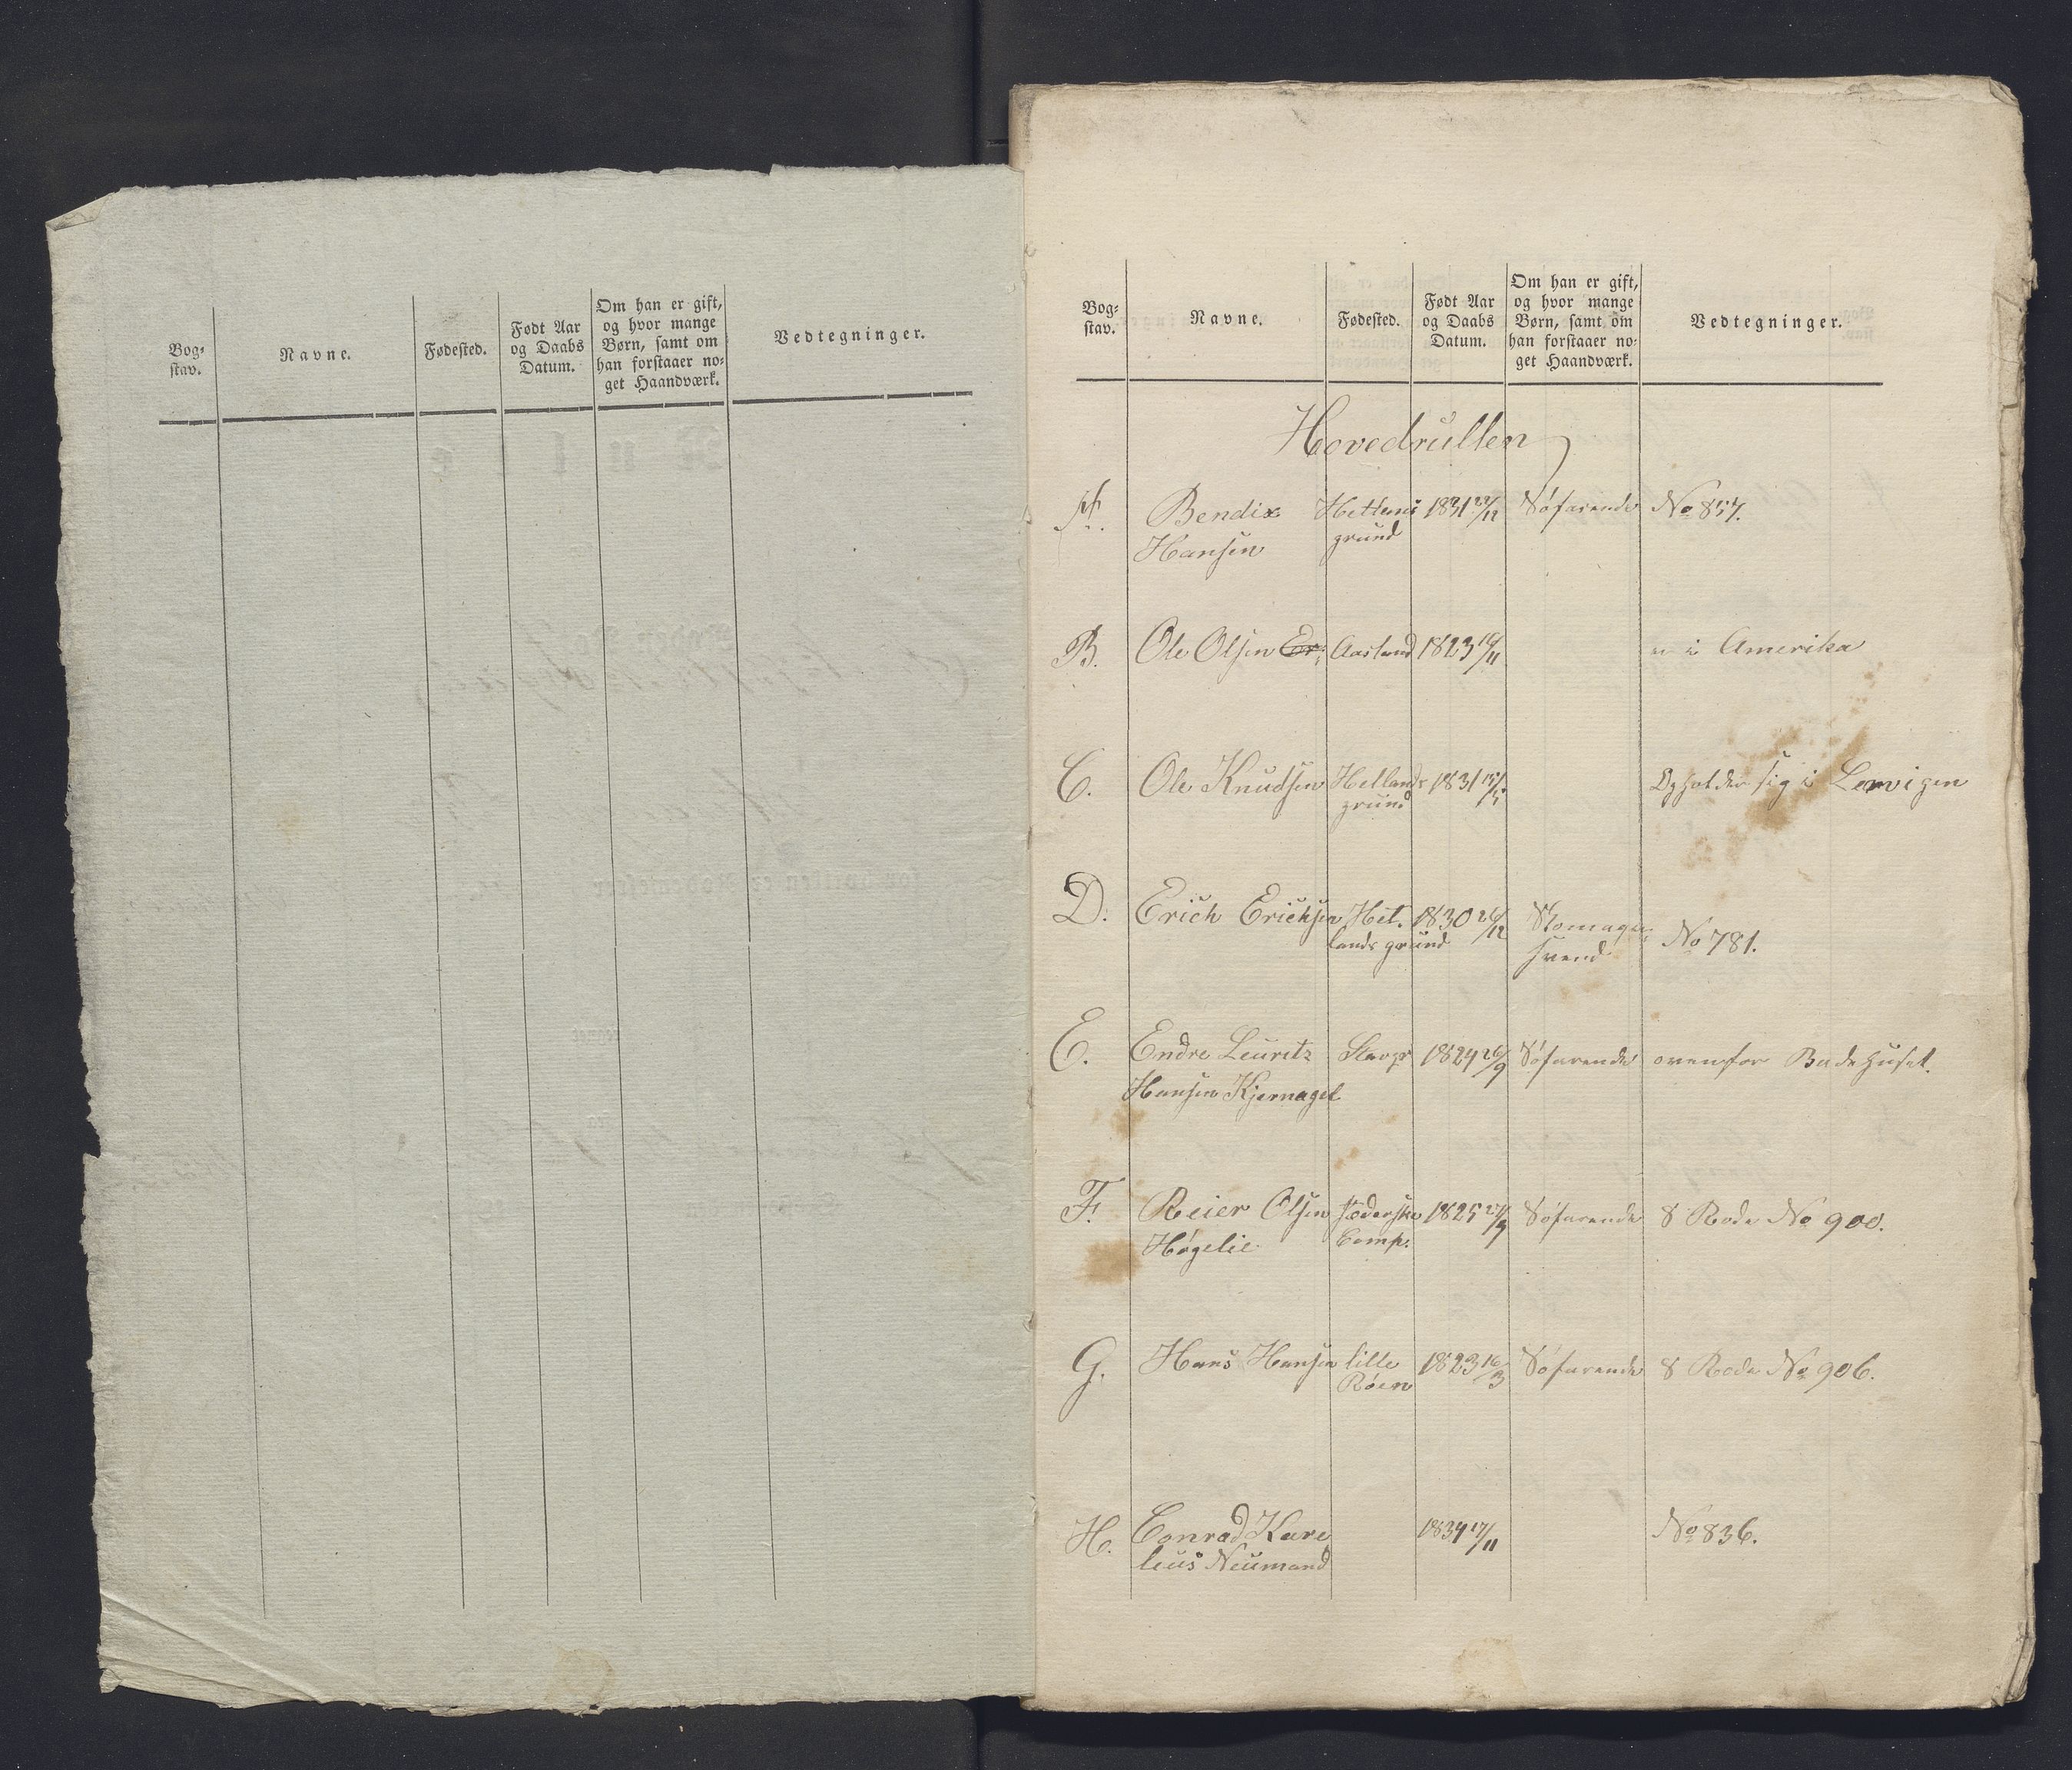 Bog-
stav.
Navne.
Fødested.
Født Aar
og Daabs
Datum.
Om han er gift,
og hvor mange
Børn, samt om
han forstaaer no-
get Haandværk.
Vedtegninger.
Bog-
stav.
Navne.
Fødested.
Født Aar
og Daabs
Datum.
Om han er gift,
og hvor mange
Børn, samt om
han forstaaer no-
get Haandværk.
Vedtegninger.
Hovedrullen
A. Bendix 1831 Søfarende No 857.
Hansen grund
B. Ole Olsen Aasland 1823 i Amerika
C. Ole Knudsen Hellands 1831 Opholder sig i Lervigen
grund
D. Erich Erichsen Het. 1830 26/12 Skomager
lands grund svend No 781.
E. Endre Leuritz Stavgr 1824 26/9 Søfarende ovenfor Badehuset.
Hansen Kjernagel
F. Reier Olsen 1825 Søfarende 8 Rode No 900.
Høgelie Comp.
G. Hans Hansen lille 1823 16/3 Søfarende 8 Rode No 906.
Røen
H. Conrad Kare 1834 17/11 No 836.
lius Neumand